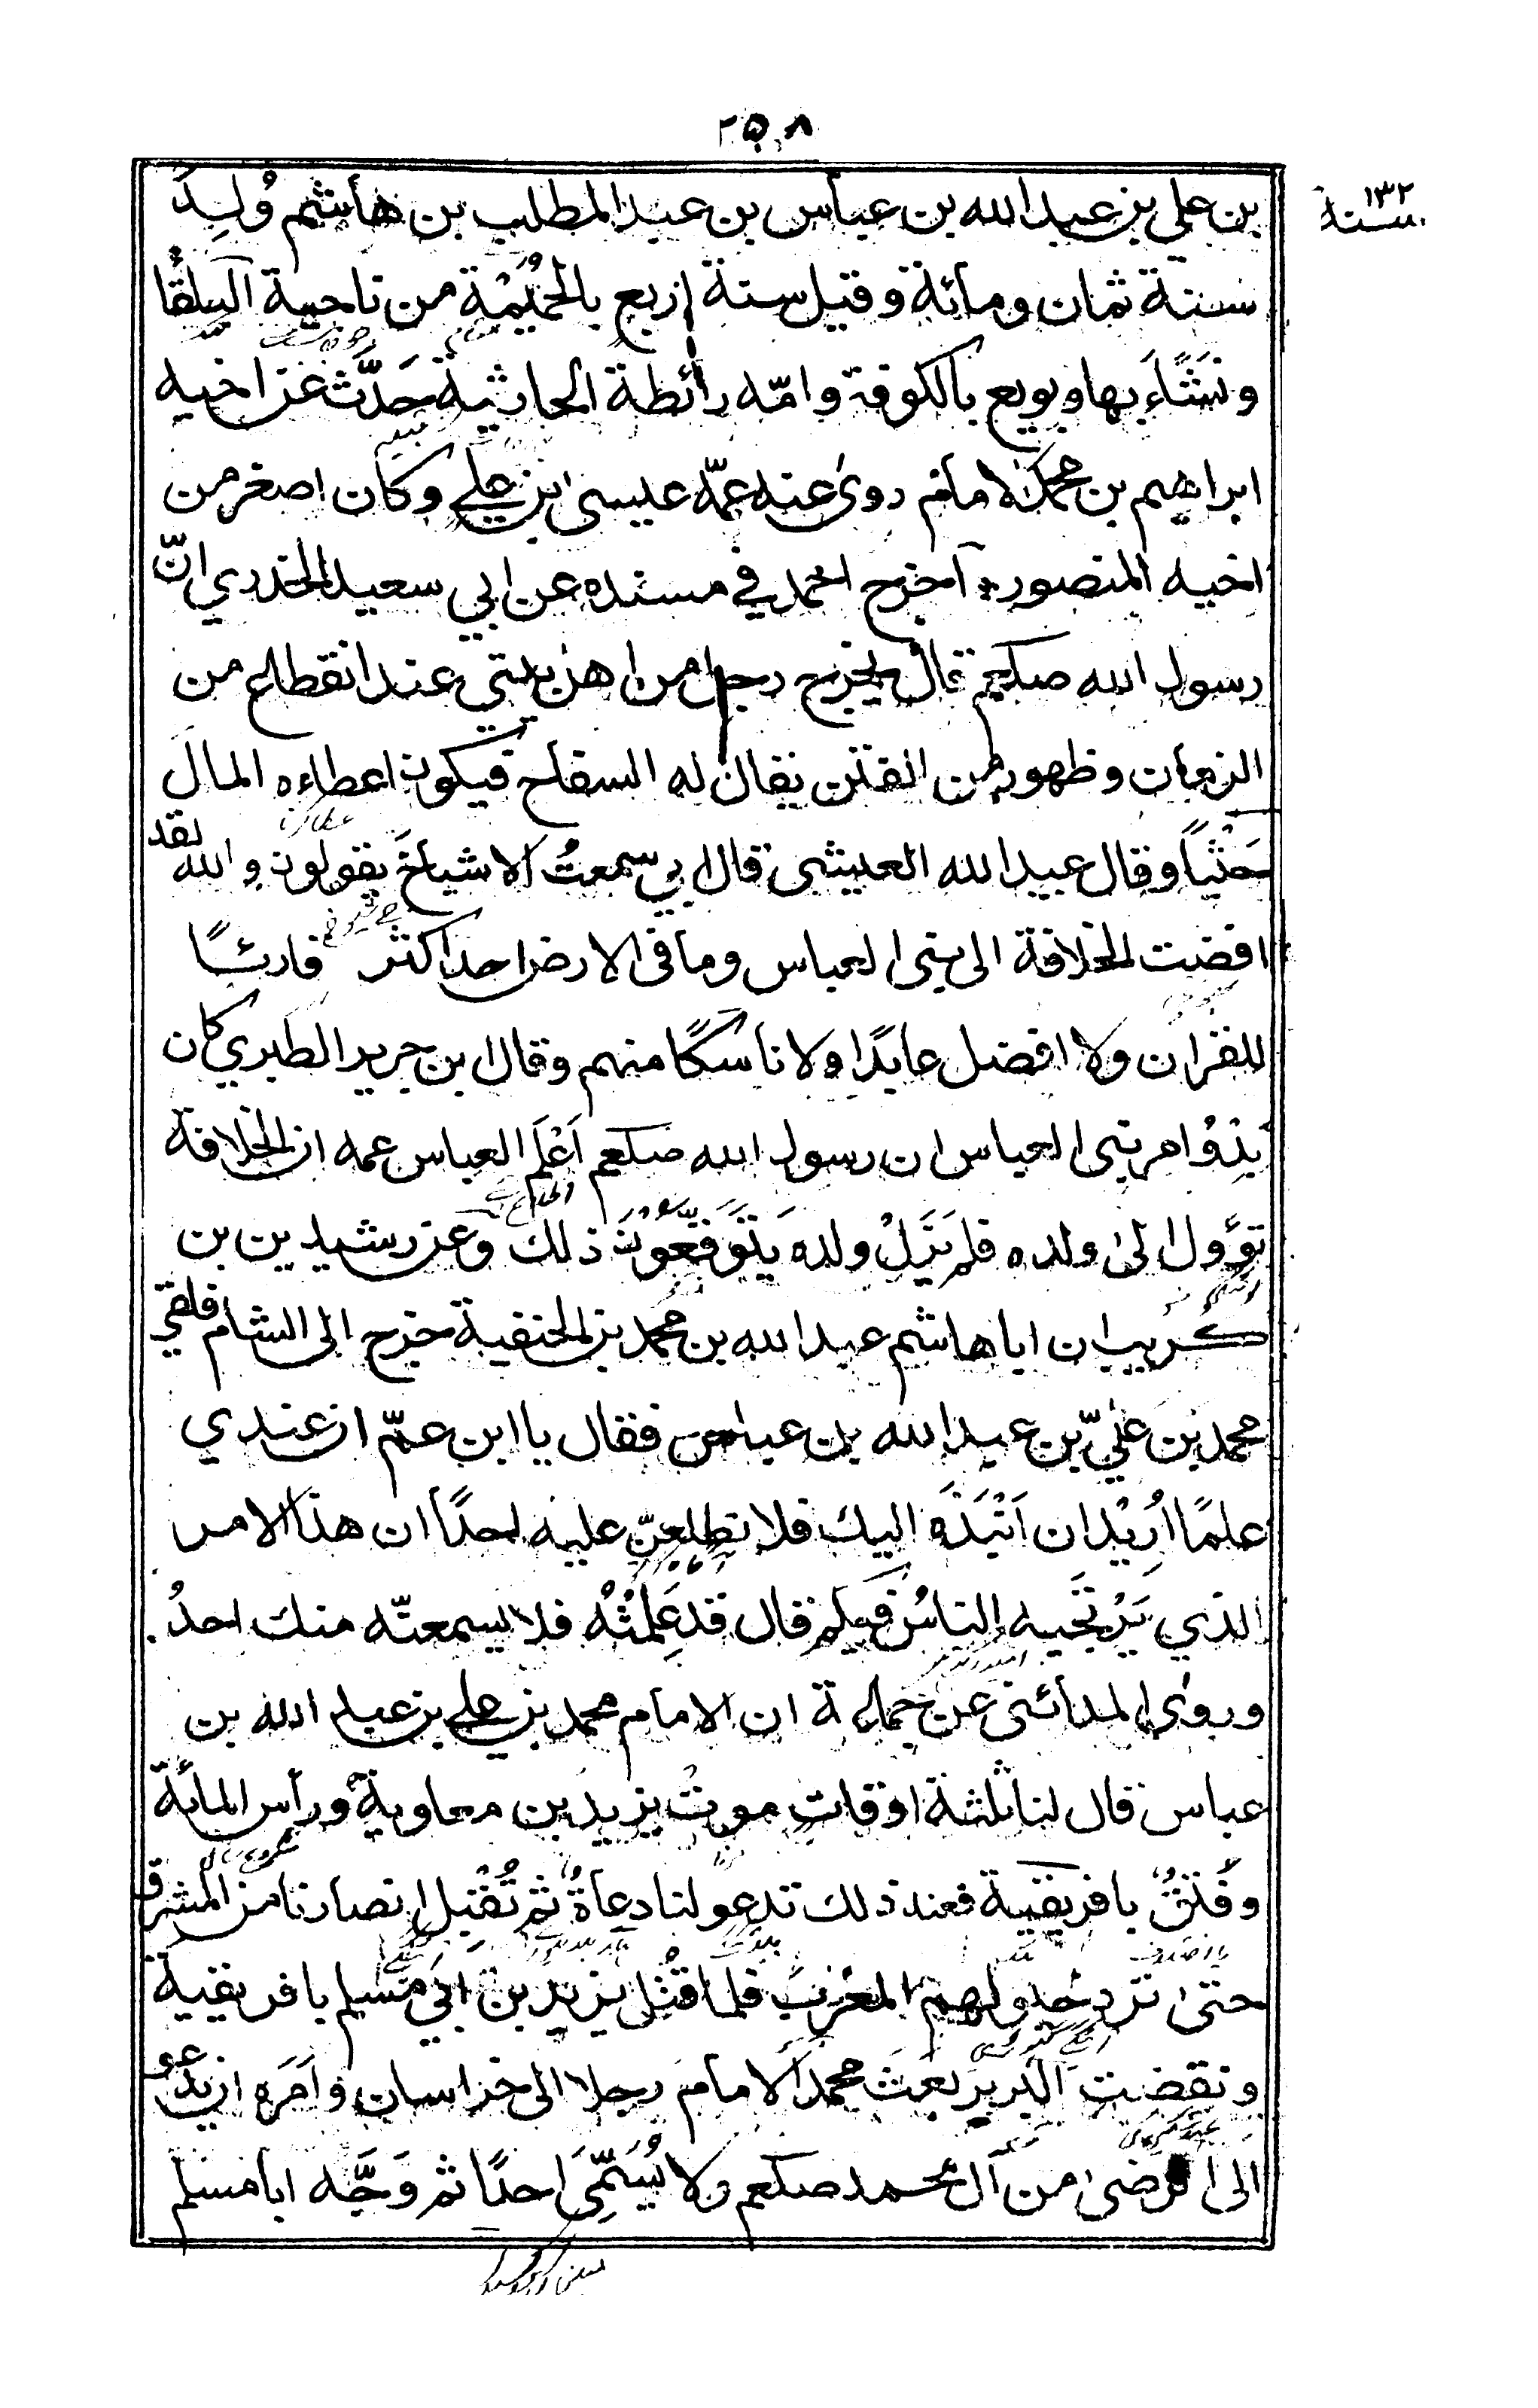 ٢٥٨
سنة ١٣٢
بن علي بن عبد الله بن عباس بن عبد المطلب بن هاشم وُلِدَ
سنة ثمان ومائة وقيل سنة اربع بالحُمَيْمَة من ناحية البلقا
ونَشَأَ بها وبويع بالكوفة وامّه رائطة الحارثية حَدَّث عن اخيه
ابراهيم بن محمد الامام روى عنه عمّه عيسى ابن علي وكان اصغر من
اخيه المنصور اخرج احمد في مسنده عن ابي سعيد الخدري انّ
رسول الله صلعم قال يخرج رجل من اهل بيتي عند انقطاع من
الزمان وظهور من الفتن يقال له السفاح فيكون اعطاءه المال
حَثْيًا وقال عبيد الله العيشى قال ابي سمعتُ الاشياخَ يقولون والله لقد
افضت الخلافة الى بنى العباس وما فى الارض احد اكثر قارئًا
للقران ولا افضل عابدًا ولا ناسكًا منهم وقال ابن جرير الطبري كان
بَدْوُ امر بنى العباس ان رسول الله صلعم اَعْلَم العباس عمه ان الخلافة
تؤول الى ولده فلم يَزَلْ ولده يَتَوَقَّعُونَ ذلك وعن رشيدين بن
كريب ان ابا هاشم عبد الله بن محمد بن الحنفية خرج الى الشام فلقي
محمد بن عليّ بن عبد الله بن عباس فقال يا ابن عمّ ان عندي
علمًا اُرِيْدُ ان اَنْبَذَه اليك فلا تطلعنّ عليه احدًا ان هذا الامر
الذي يَرْتَجيه الناسُ فيكم قال قد عَلِمْتُهُ فلا يسمعنّه منك احدُ
وروى المدائنى عن جماعة ان الامام محمد بن علي بن عبد الله بن
عباس قال لنا ثلثة اوقات موت يزيد بن معاوية وراس المائة
وفَتْقُ بافريقية فعند ذلك تدعو لنا دعاةُ ثم تُقْبل انصارنا من المشرق
حتى ترد خيولهم المغرب فلما قُتل يزيد بن ابي مسلم بافريقية
ونقضت البربر بعَثَ محمد الامام رجلا الى خراسان وامَره ان يدعو
الى الرضى من آل محمد صلعم ولا يُسَمِّيَ احدًا ثم وَجَّه ابا مسلم